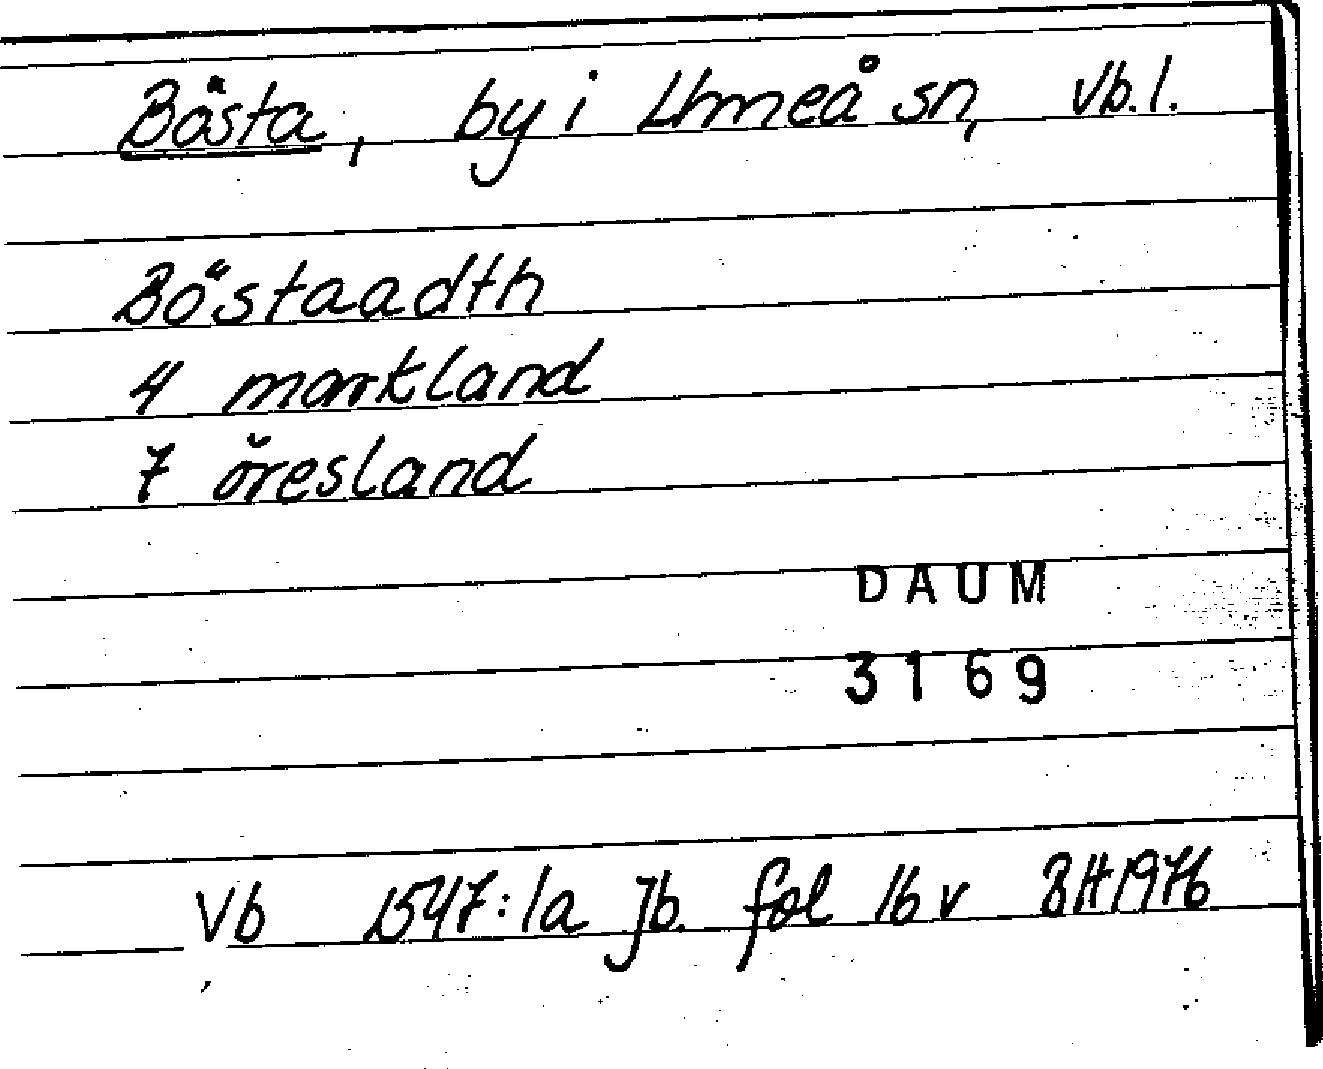 Bösta, by i Umeå sn, Vb.l.
Böstaadth
4 markland
7 öresland
DAUM
3169
Vb 1547:1a Jb. fol 16 v BH 1976